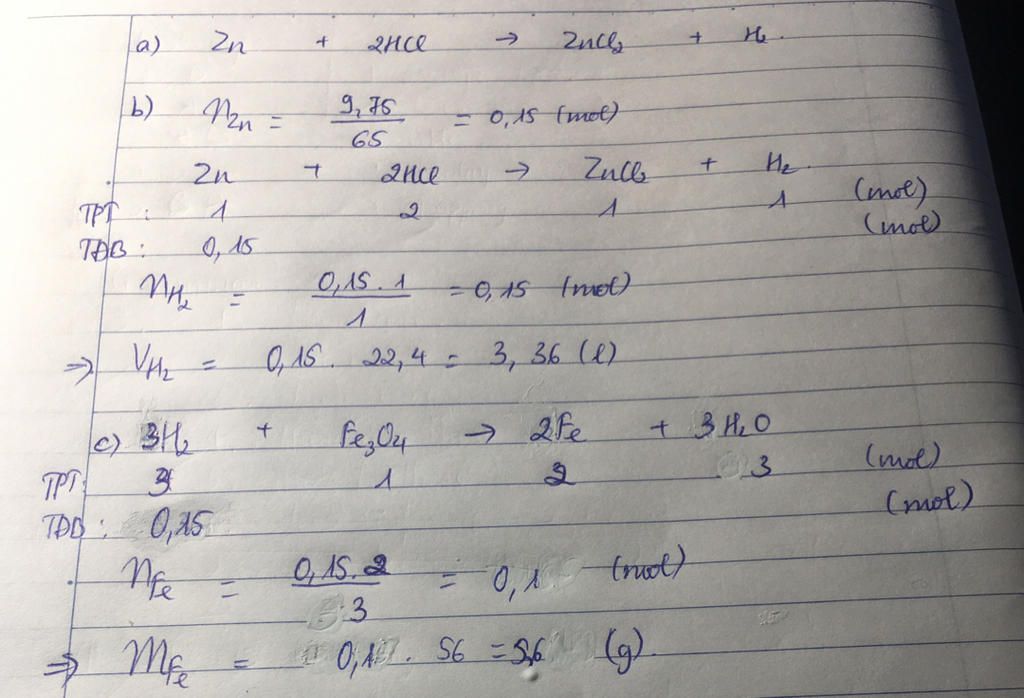 a) Zn + 2HCl → ZnCl₂ + H₂.
b) n Zn = 9,75 / 65 = 0,15 (mol)
Zn + 2HCl → ZnCl₂ + H₂.
TPT : 1 2 1 1 (mol)
TĐB : 0,15 (mol)
n H₂ = 0,15 . 1 / 1 = 0,15 (mol)
⇒ V H₂ = 0,15 . 22,4 = 3,36 (l)
c) 3H₂ + Fe₃O₄ → 2Fe + 3H₂O
TPT: 3 1 2 3 (mol)
TĐB : 0,15 (mol)
n Fe = 0,15 . 2 / 3 = 0,1 (mol)
⇒ m Fe = 0,1 . 56 = 5,6 (g).